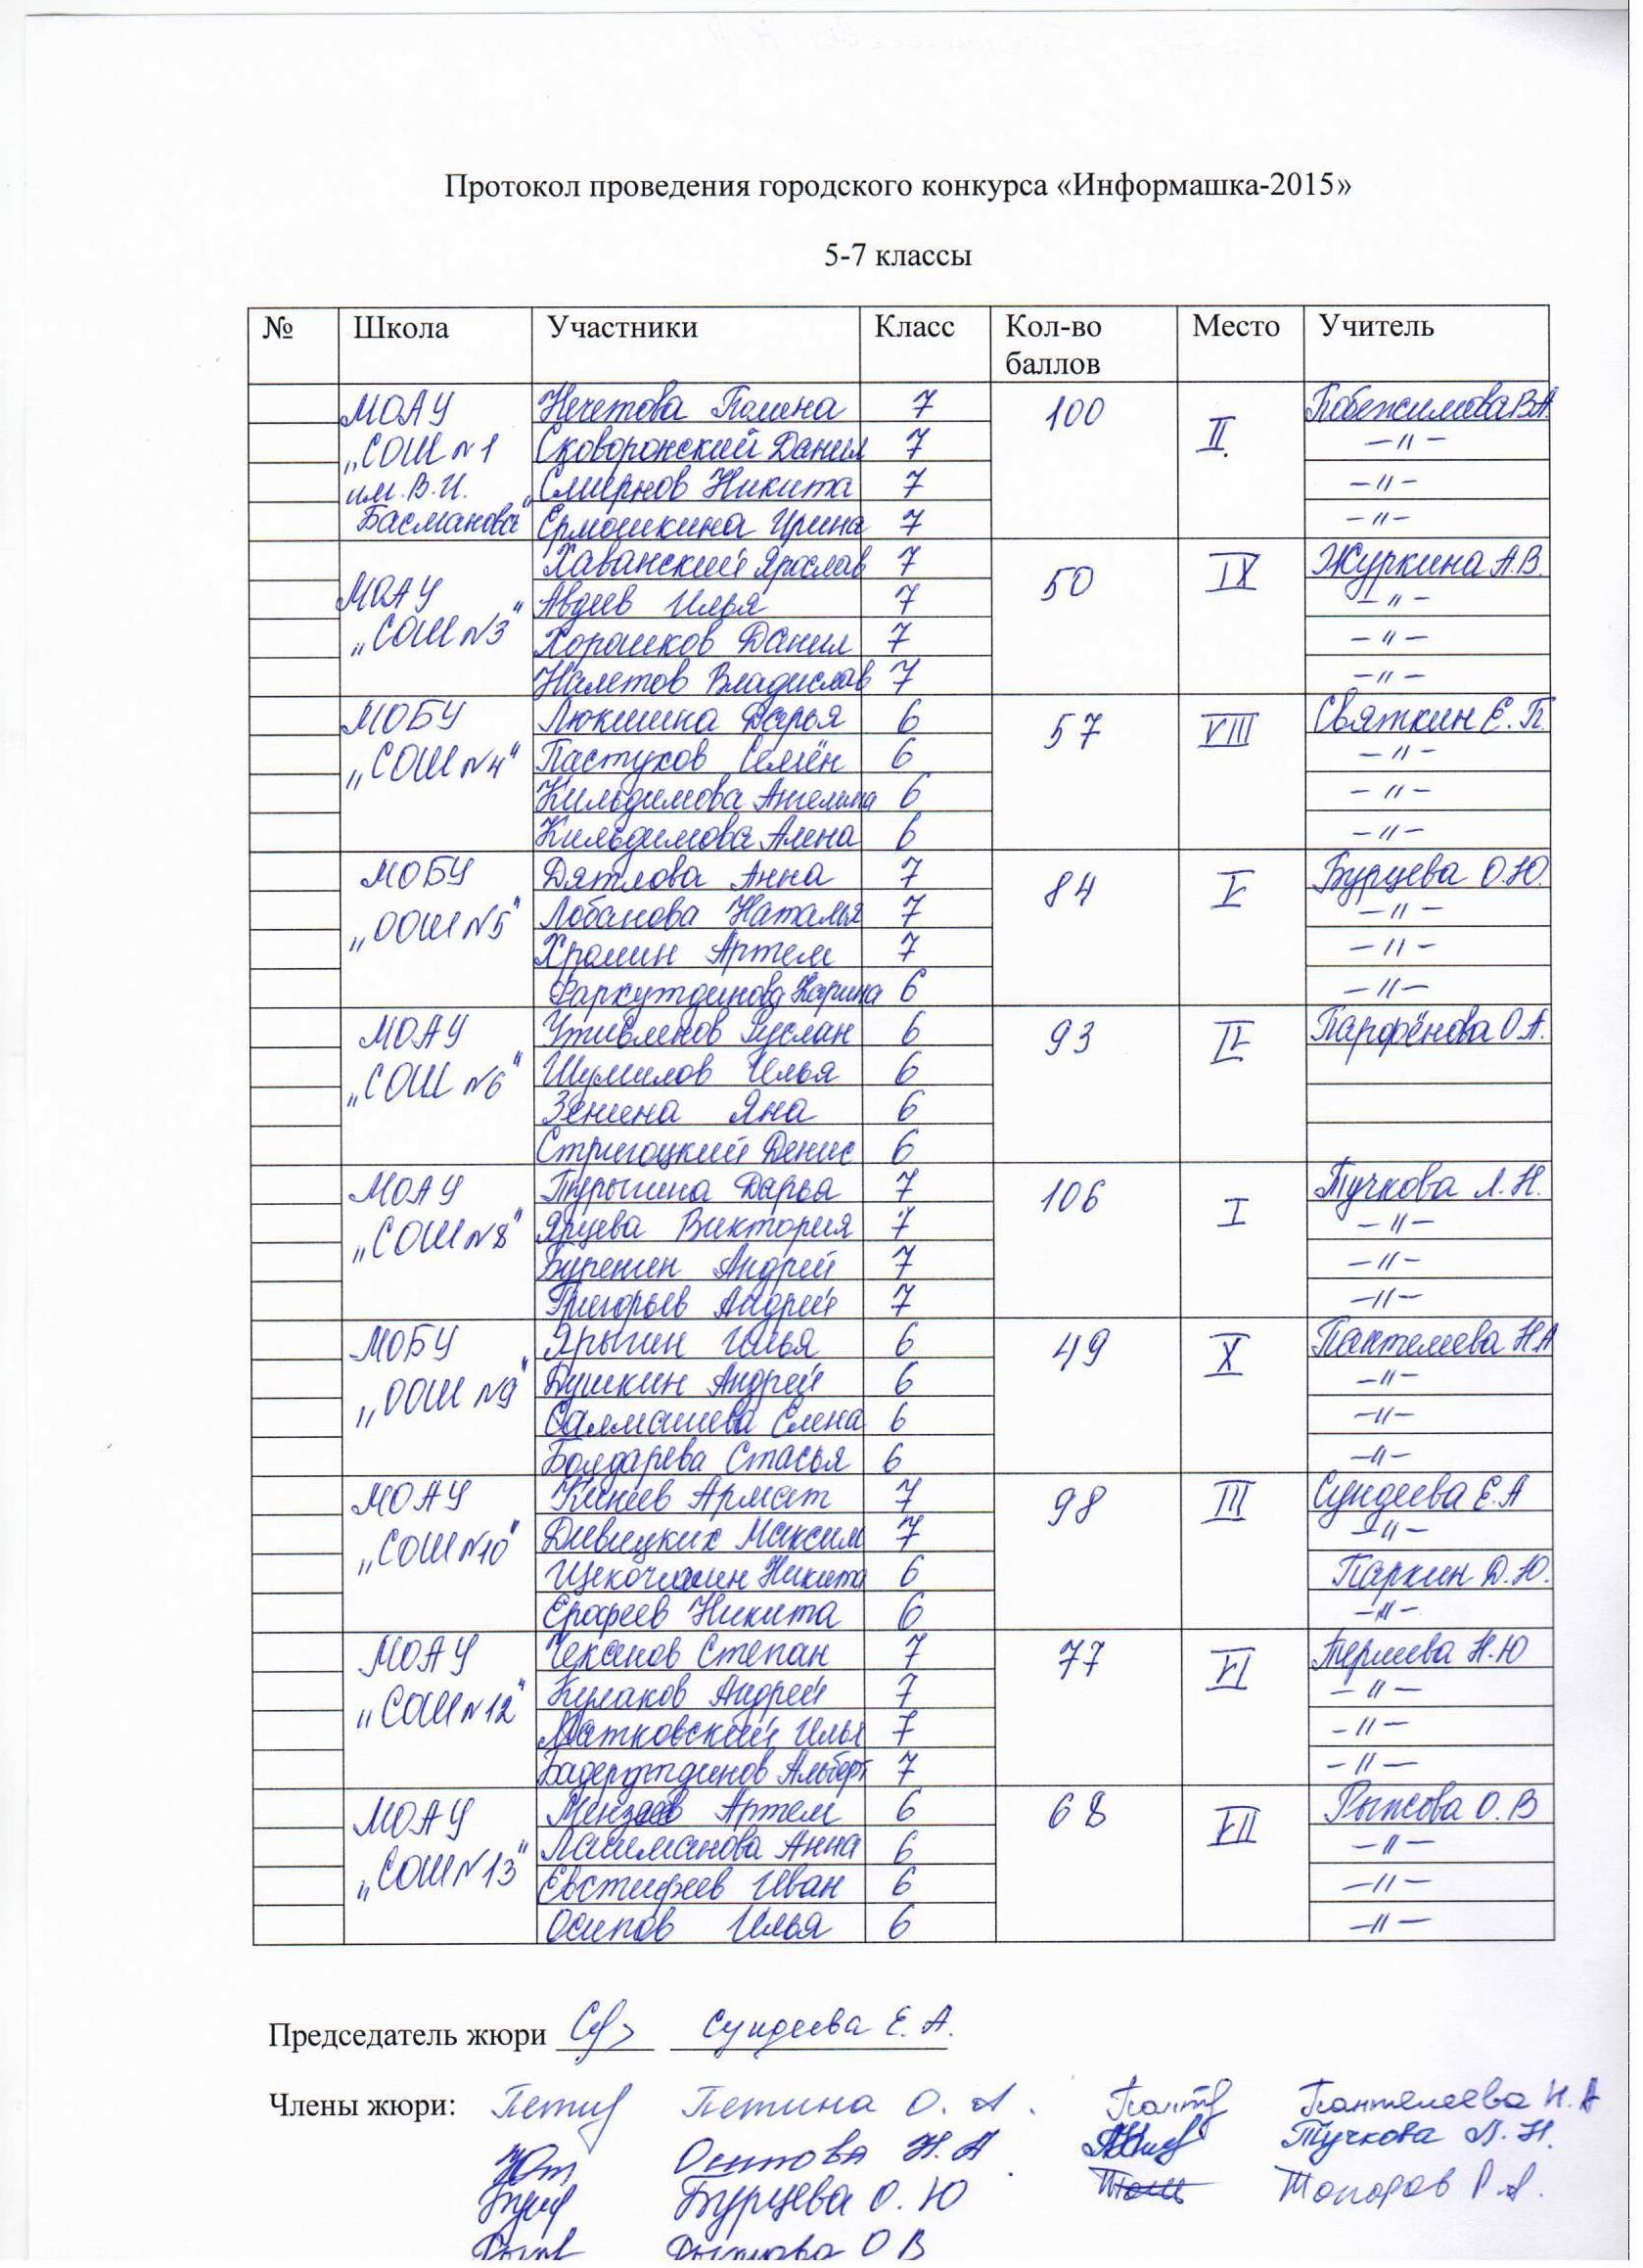 Протокол проведения городского конкурса «Информашка-2015»
5-7 классы
№ Школа Участники Класс Кол-во баллов Место Учитель
МОАУ „СОШ №1 им. В.И. Басманова"
Нечетова Полина 7 100 II Побежимова В.А.
Сковоронский Данил 7 –"–
Смирнов Никита 7 –"–
Ермошкина Ирина 7 –"–
МОАУ „СОШ №3"
Хаванский Ярослав 7 50 IX Журкина А.В.
Авдеев Илья 7 –"–
Хорошков Данил 7 –"–
Налетов Владислав 7 –"–
МОБУ „СОШ №4"
Люкшина Дарья 6 57 VIII Святкин Е.П.
Пастухов Семён 6 –"–
Кильдимова Ангелина 6 –"–
Кильдимова Алена 6 –"–
МОБУ „ООШ №5"
Дятлова Анна 7 84 V Бурцева О.Ю.
Лобанова Наталья 7 –"–
Хромин Артем 7 –"–
Фаркутдинова Карина 6 –"–
МОАУ „СОШ №6"
Утивленов Руслан 6 93 IV Парфёнова О.А.
Шумилов Илья 6
Зенина Яна 6
Стригоцкий Денис 6
МОАУ „СОШ №8"
Пурыгина Дарья 7 106 I Тучкова Л.Н.
Ярцева Виктория 7 –"–
Буренин Андрей 7 –"–
Григорьев Андрей 7 –"–
МОБУ „ООШ №9"
Ярыгин Илья 6 49 X Пантелеева Н.А
Бушкин Андрей 6 –"–
Салмашева Елена 6 –"–
Болдарева Стасья 6 –"–
МОАУ „СОШ №10"
Кинеев Армат 7 98 III Сундеева Е.А
Дивицких Максим 7 –"–
Щекочихин Никита 6 Паркин Д.Ю.
Ерофеев Никита 6 –"–
МОАУ „СОШ №12"
Чеканов Степан 7 77 VI Термева Н.Ю
Кулаков Андрей 7 –"–
Матковский Илья 7 –"–
Бадертдинов Альберт 7 –"–
МОАУ „СОШ №13"
Артем 6 68 VII Рыжова О.В
Лашманова Анна 6 –"–
Евстифеев Иван 6 –"–
Осипов Илья 6 –"–
Председатель жюри Сундеева Е. А.
Члены жюри: Петина О. А. Пантелеева Н. А
Осипова Н. А Тучкова Л. Н.
Бурцева О. Ю Топоров Р. А.
Рыжова О В